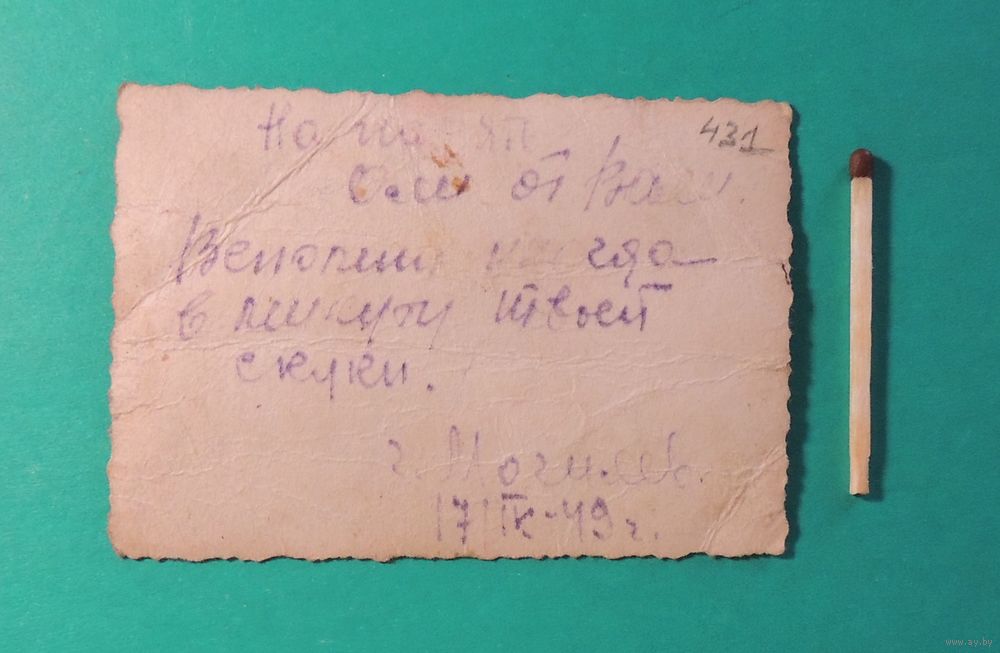 На память
431
Оли от Вали.
Вспомни когда
в минуту твоей
скуки.
г. Могилев.
17/IX-49 г.
www.ay.by